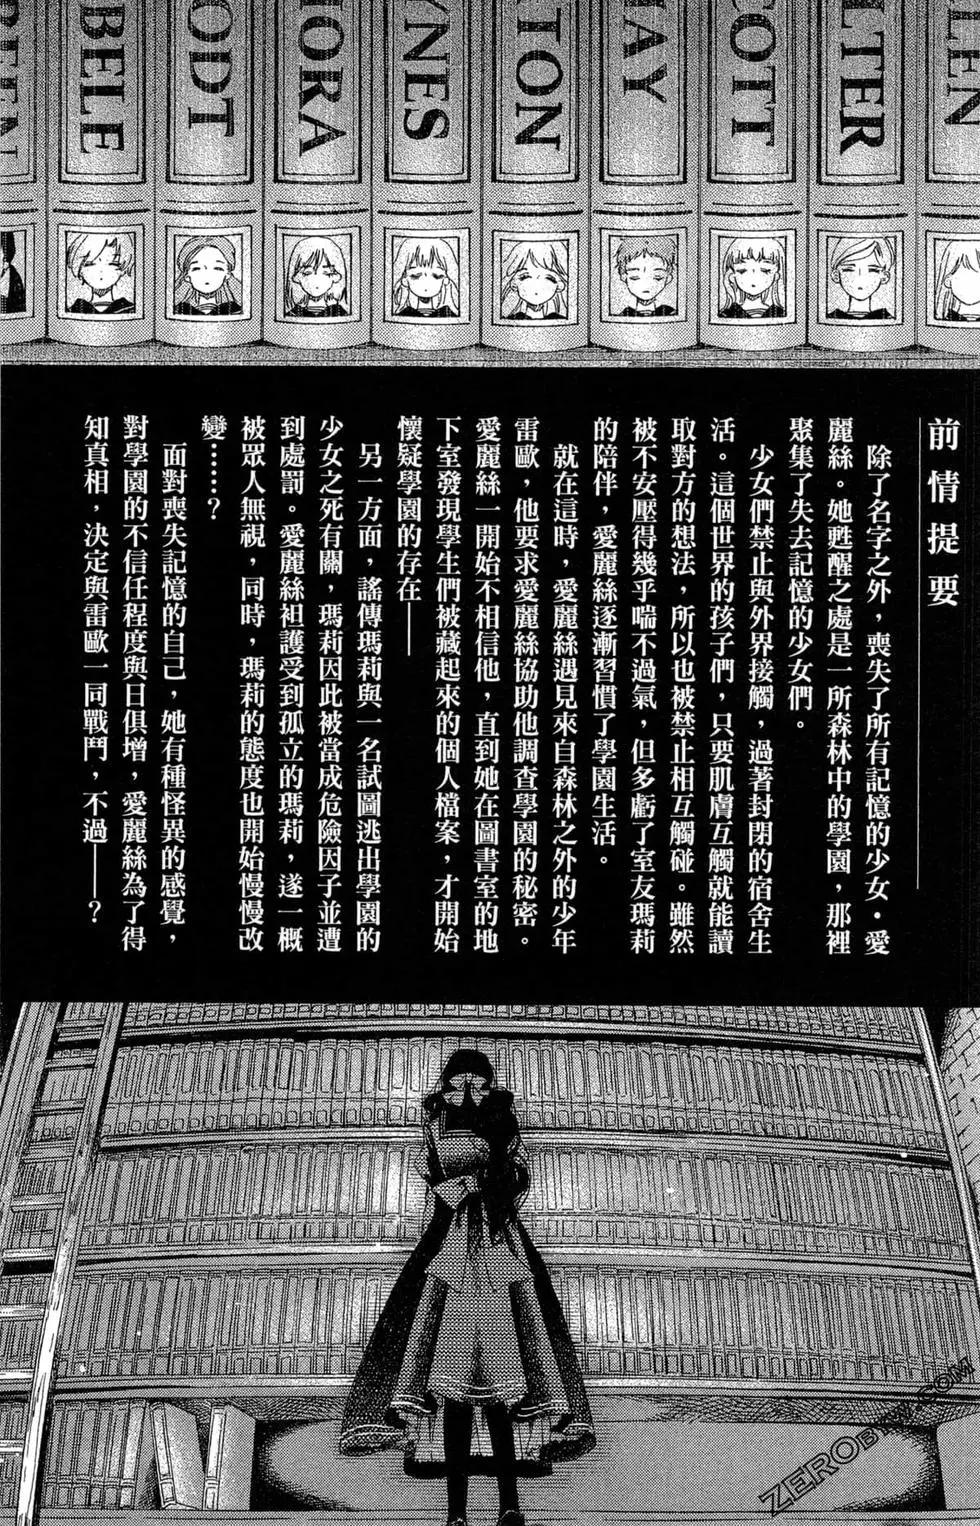 BELE
ODT
HORA
YNES
TION
HAY
COTT
LTER
LEN
前情提要
除了名字之外，喪失了所有記憶的少女・愛
麗絲。她甦醒之處是一所森林中的學園，那裡
聚集了失去記憶的少女們。
少女們禁止與外界接觸，過著封閉的宿舍生
活。這個世界的孩子們，只要肌膚互觸就能讀
取對方的想法，所以也被禁止相互觸碰。雖然
被不安壓得幾乎喘不過氣，但多虧了室友瑪莉
的陪伴，愛麗絲逐漸習慣了學園生活。
就在這時，愛麗絲遇見來自森林之外的少年
雷歐，他要求愛麗絲協助他調查學園的秘密。
愛麗絲一開始不相信他，直到她在圖書室的地
下室發現學生們被藏起來的個人檔案，才開始
懷疑學園的存在——
另一方面，謠傳瑪莉與一名試圖逃出學園的
少女之死有關，瑪莉因此被當成危險因子並遭
到處罰。愛麗絲袒護受到孤立的瑪莉，遂一概
被眾人無視，同時，瑪莉的態度也開始慢慢改
變……？
面對喪失記憶的自己，她有種怪異的感覺，
對學園的不信任程度與日俱增，愛麗絲為了得
知真相，決定與雷歐一同戰鬥，不過——？